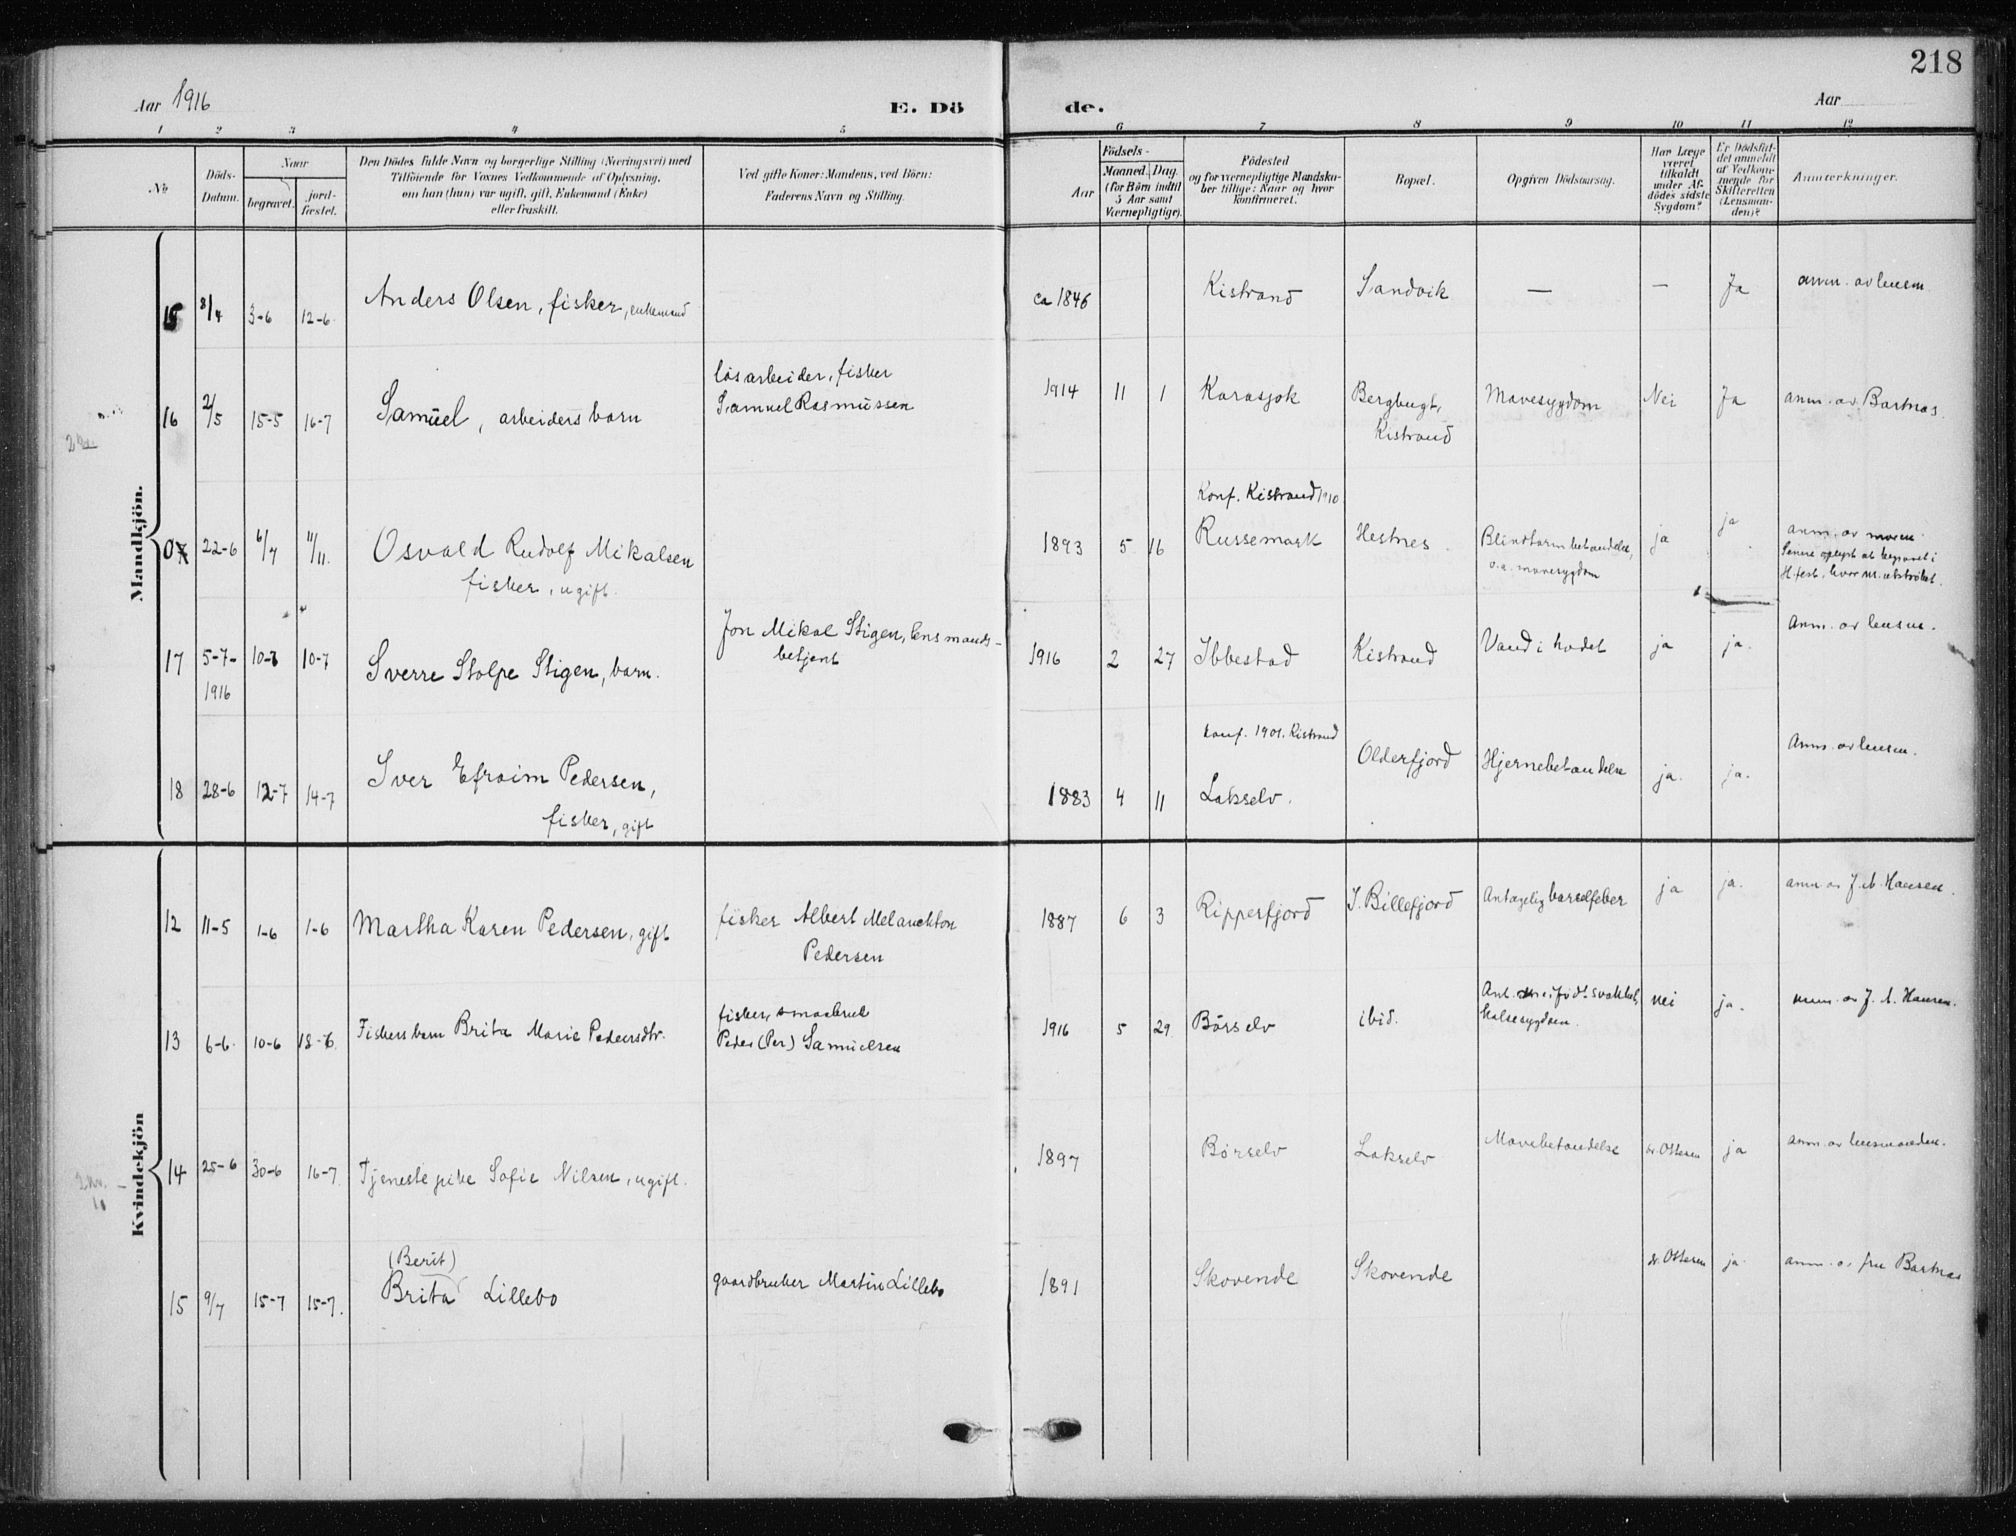 218
Aar 1916
E. Dö
de.
Aar
1 2 3 4 5 6 7 8 9 10 11 12
No
Döds-
Datum.
Naar
begravet.
jord-
fæstet.
Den Dödes fulde Navn og borgerlige Stilling (Næringsvei) med
Tilföiende for Voxnes Vedkommende af Oplysning,
om han (hun) var ugift, gift, Enkemand (Enke)
eller fraskilt.
Ved gifte Koner: Mandens, ved Börn:
Faderens Navn og Stilling.
Födsels-
Aar
Maaned. Dag.
(for Börn indtil
5 Aar samt
Værnepligtige).
Födested
og for værnepligtige Mandska-
ber tillige: Naar og hvor
konfirmeret.
Bopæl.
Opgiven Dödsaarsag.
Har Læge
været
tilkaldt
under Af-
dödes sidste
Sygdom?
Er Dödsfal-
det anmeldt
af Vedkom-
mende for
Skifteretten
(Lensman-
den)?
Anmærkninger.
Mandkjön.
15 8/4 3-6 12-6 Anders Olsen, fisker, enkemand ca 1846 Kistrand Sandvik — — Ja anm. av lensm
16 2/5 15-5 16-7 Samuel, arbeiders barn
løsarbeider, fisker
Samuel Rasmussen
1914 11 1 Karasjok Bergbugt,
Kistrand
Mavesygdom Nei Ja anm. av Bartnas.
22-6 6/7 11/11. Osvald Rudolf Mikalsen
fisker, ugift.
1893 5 16
Konf. Kistrand 1910
Russemark Hestnes.
Blindtarmbetændelse,
o.a. mavesygdom
ja ja
anm. av moren
Senere oplyst at begravet i
H.fest, hvor nr. utstrøket.
17 5-7-
1916
10-7 10-7 Sverre Stolpe Stigen, barn.
Jon Mikal Stigen, lensmands-
betjent
1916 2 27 Ibbestad Kistrand Vand i hodet ja ja. Anm. av lensm.
18 28-6 12-7 14-7 Iver Efraim Pedersen,
fisker, gift
1883 4 11
konf. 1901. Kistrand
Lakselv.
Olderfjord Hjernebetændelse ja. ja. Anm. av lensm.
Kvindekjön
12 11-5 1-6 1-6 Martha Karen Pedersen, gift
fisker Albert Melanchton
Pedersen
1887 6 3 Ripperfjord I. Billefjord Antagelig barselfeber ja ja. anm av J. A. Hansen.
13 6-6. 10-6 18-6 Fiskers barn Brita Marie Pedersdtr.
fisker, smaabruk
Peder (Per) Samuelsen
1916 5 29 Børselv ibid.
halsesygdom.
nei ja. anm. av J. A. Hansen.
14 25-6 30-6 16-7 Tjenestepike Sofie Nilsen, ugift.
1897 Børselv Lakselv Mavebetændelse dr. Ottesen ja anm. av lensmanden.
15 9/7 15-7 15-7.
(Berit)
Brita Lillebo
gaardbruker Martin Lillebo
1891 Skovende Skovende dr. Ottesen ja. anm. av fru Bartnas